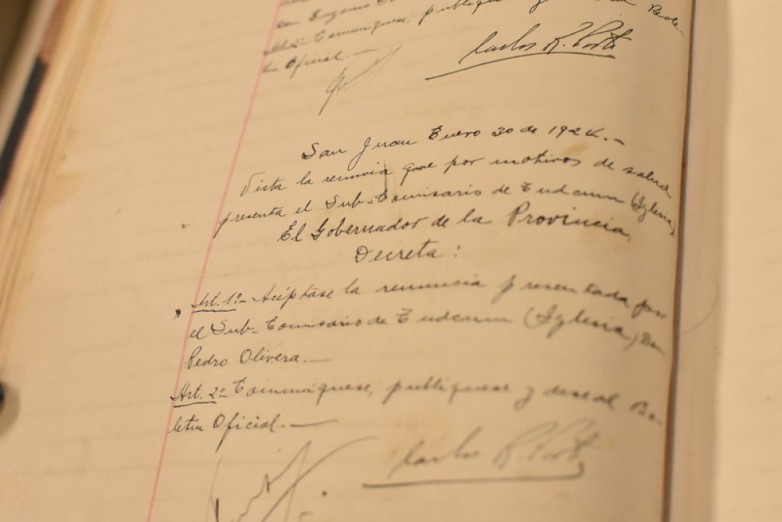 en Eugenio
Comuníquese, publíquese y Bole-
tín Oficial.—
Carlos R. Porto
San Juan Enero 30 de 1924.-
Vista la renuncia que por motivos de salud
presenta el Sub-Comisario de Tudcum (Iglesia)
El Gobernador de la Provincia
Decreta:
Art. 1º- Acéptase la renuncia presentada por
el Sub-Comisario de Tudcum (Iglesia) Don
Pedro Olivera.—
Art. 2º Comuníquese, publíquese y dese al Bo-
letín Oficial.—
Carlos R. Porto